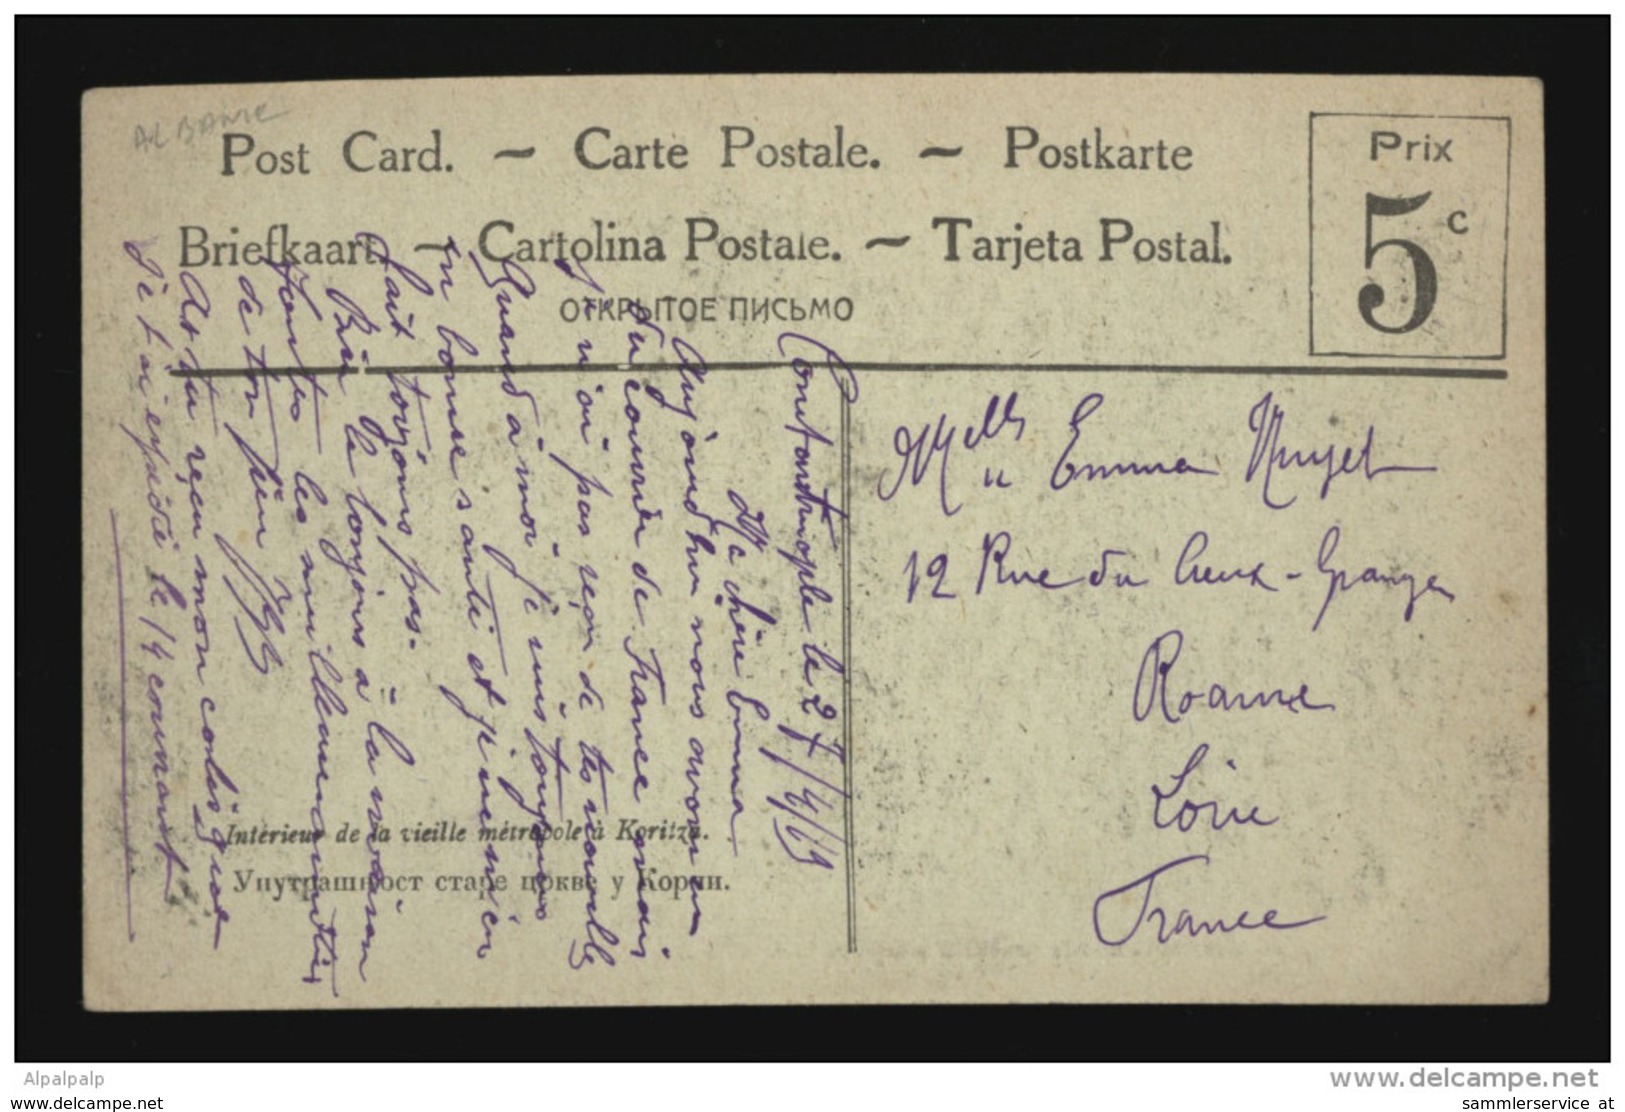 ALBANIE
Post Card. ~ Carte Postale. ~ Postkarte
Briefkaart. ~ Cartolina Postale. ~ Tarjeta Postal.
ОТКРЫТОЕ ПИСЬМО
Prix
5 c
Constantinople le 27/4/19
Ma chère Emma
Aujourd'hui nous avons eu
du courrier de France mais
je n'ai pas reçu de tes nouvelles
Quand à moi je suis toujours
en bonne santé et je m'en
fait toujours pas.
Bien le bonjour à la maison
de ton
As-tu reçu mon colis que
je t'ai expédié le 14 courant
Melle Emma
12 Rue du Creux-Granger
Roanne
Loire
France
Intérieur de la vieille métropole à Koritza.
Унутрашњост старе цркве у Корчи.
Alpalpalp
www.delcampe.net
www.delcampe.com
sammlerservice at